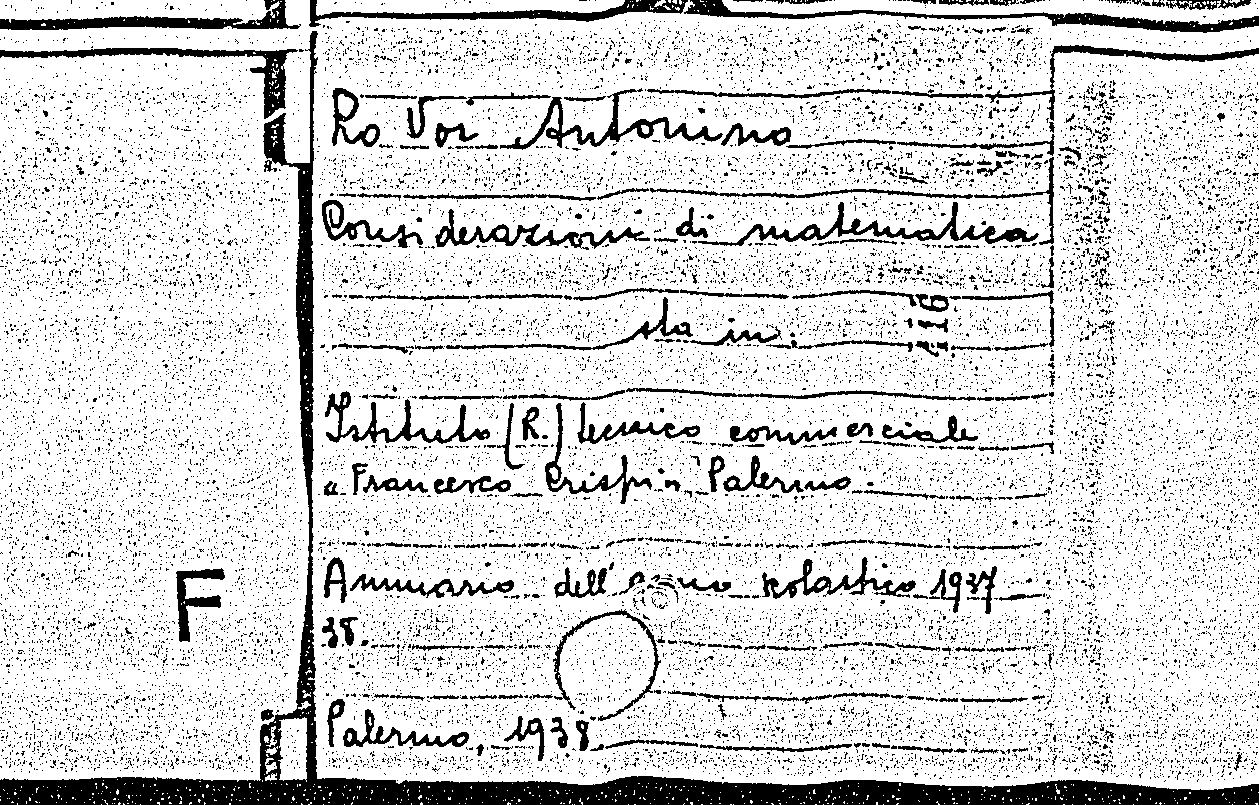 Lo Voi Antonino
Considerazioni di matematica
sta in:
116
Istituto (R.) tecnico commerciale
"Francesco Crispi" Palermo.
Annuario dell'anno scolastico 1937
38.
F
Palermo, 1938.